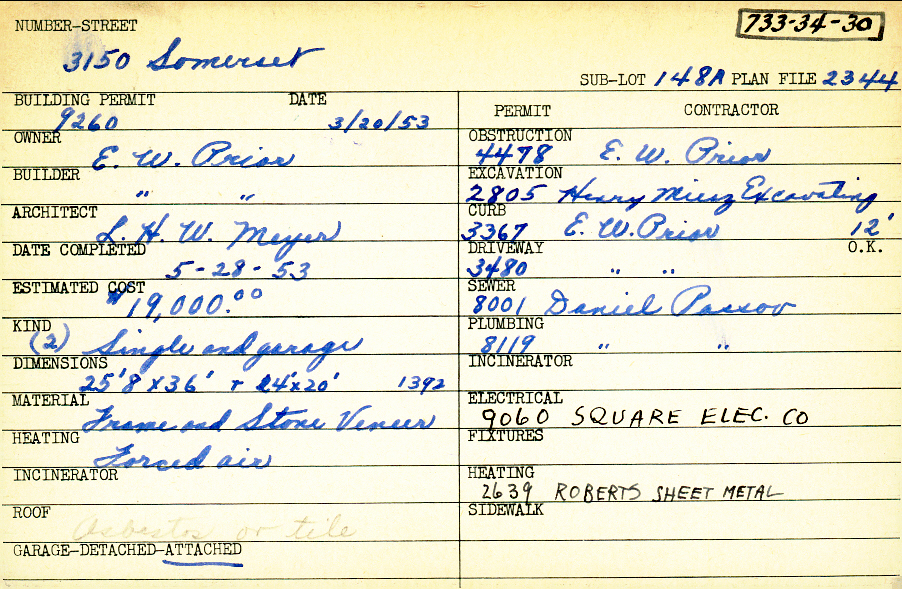 NUMBER-STREET
733-34-30
3150 Somerset
SUB-LOT 148A PLAN FILE 2344
BUILDING PERMIT DATE
9260 3/20/53
OWNER
E. W. Prior
BUILDER
" "
ARCHITECT
L. H. W. Meyer
DATE COMPLETED
5-28-53
ESTIMATED COST
$19,000.00
KIND
(2) Single and garage
DIMENSIONS
25'8 x 36' + 24'x20' 1392
MATERIAL
Frame and Stone Veneer
HEATING
Forced air
INCINERATOR
ROOF
Asbestos or tile
GARAGE-DETACHED-ATTACHED
PERMIT CONTRACTOR
OBSTRUCTION
4478 E. W. Prior
EXCAVATION
2805 Henry Excavating
CURB
3367 E. W. Prior 12'
DRIVEWAY O.K.
3480 " "
SEWER
8001 Daniel Passov
PLUMBING
8119 " "
INCINERATOR
ELECTRICAL
9060 SQUARE ELEC. CO
FIXTURES
HEATING
2639 ROBERTS SHEET METAL
SIDEWALK